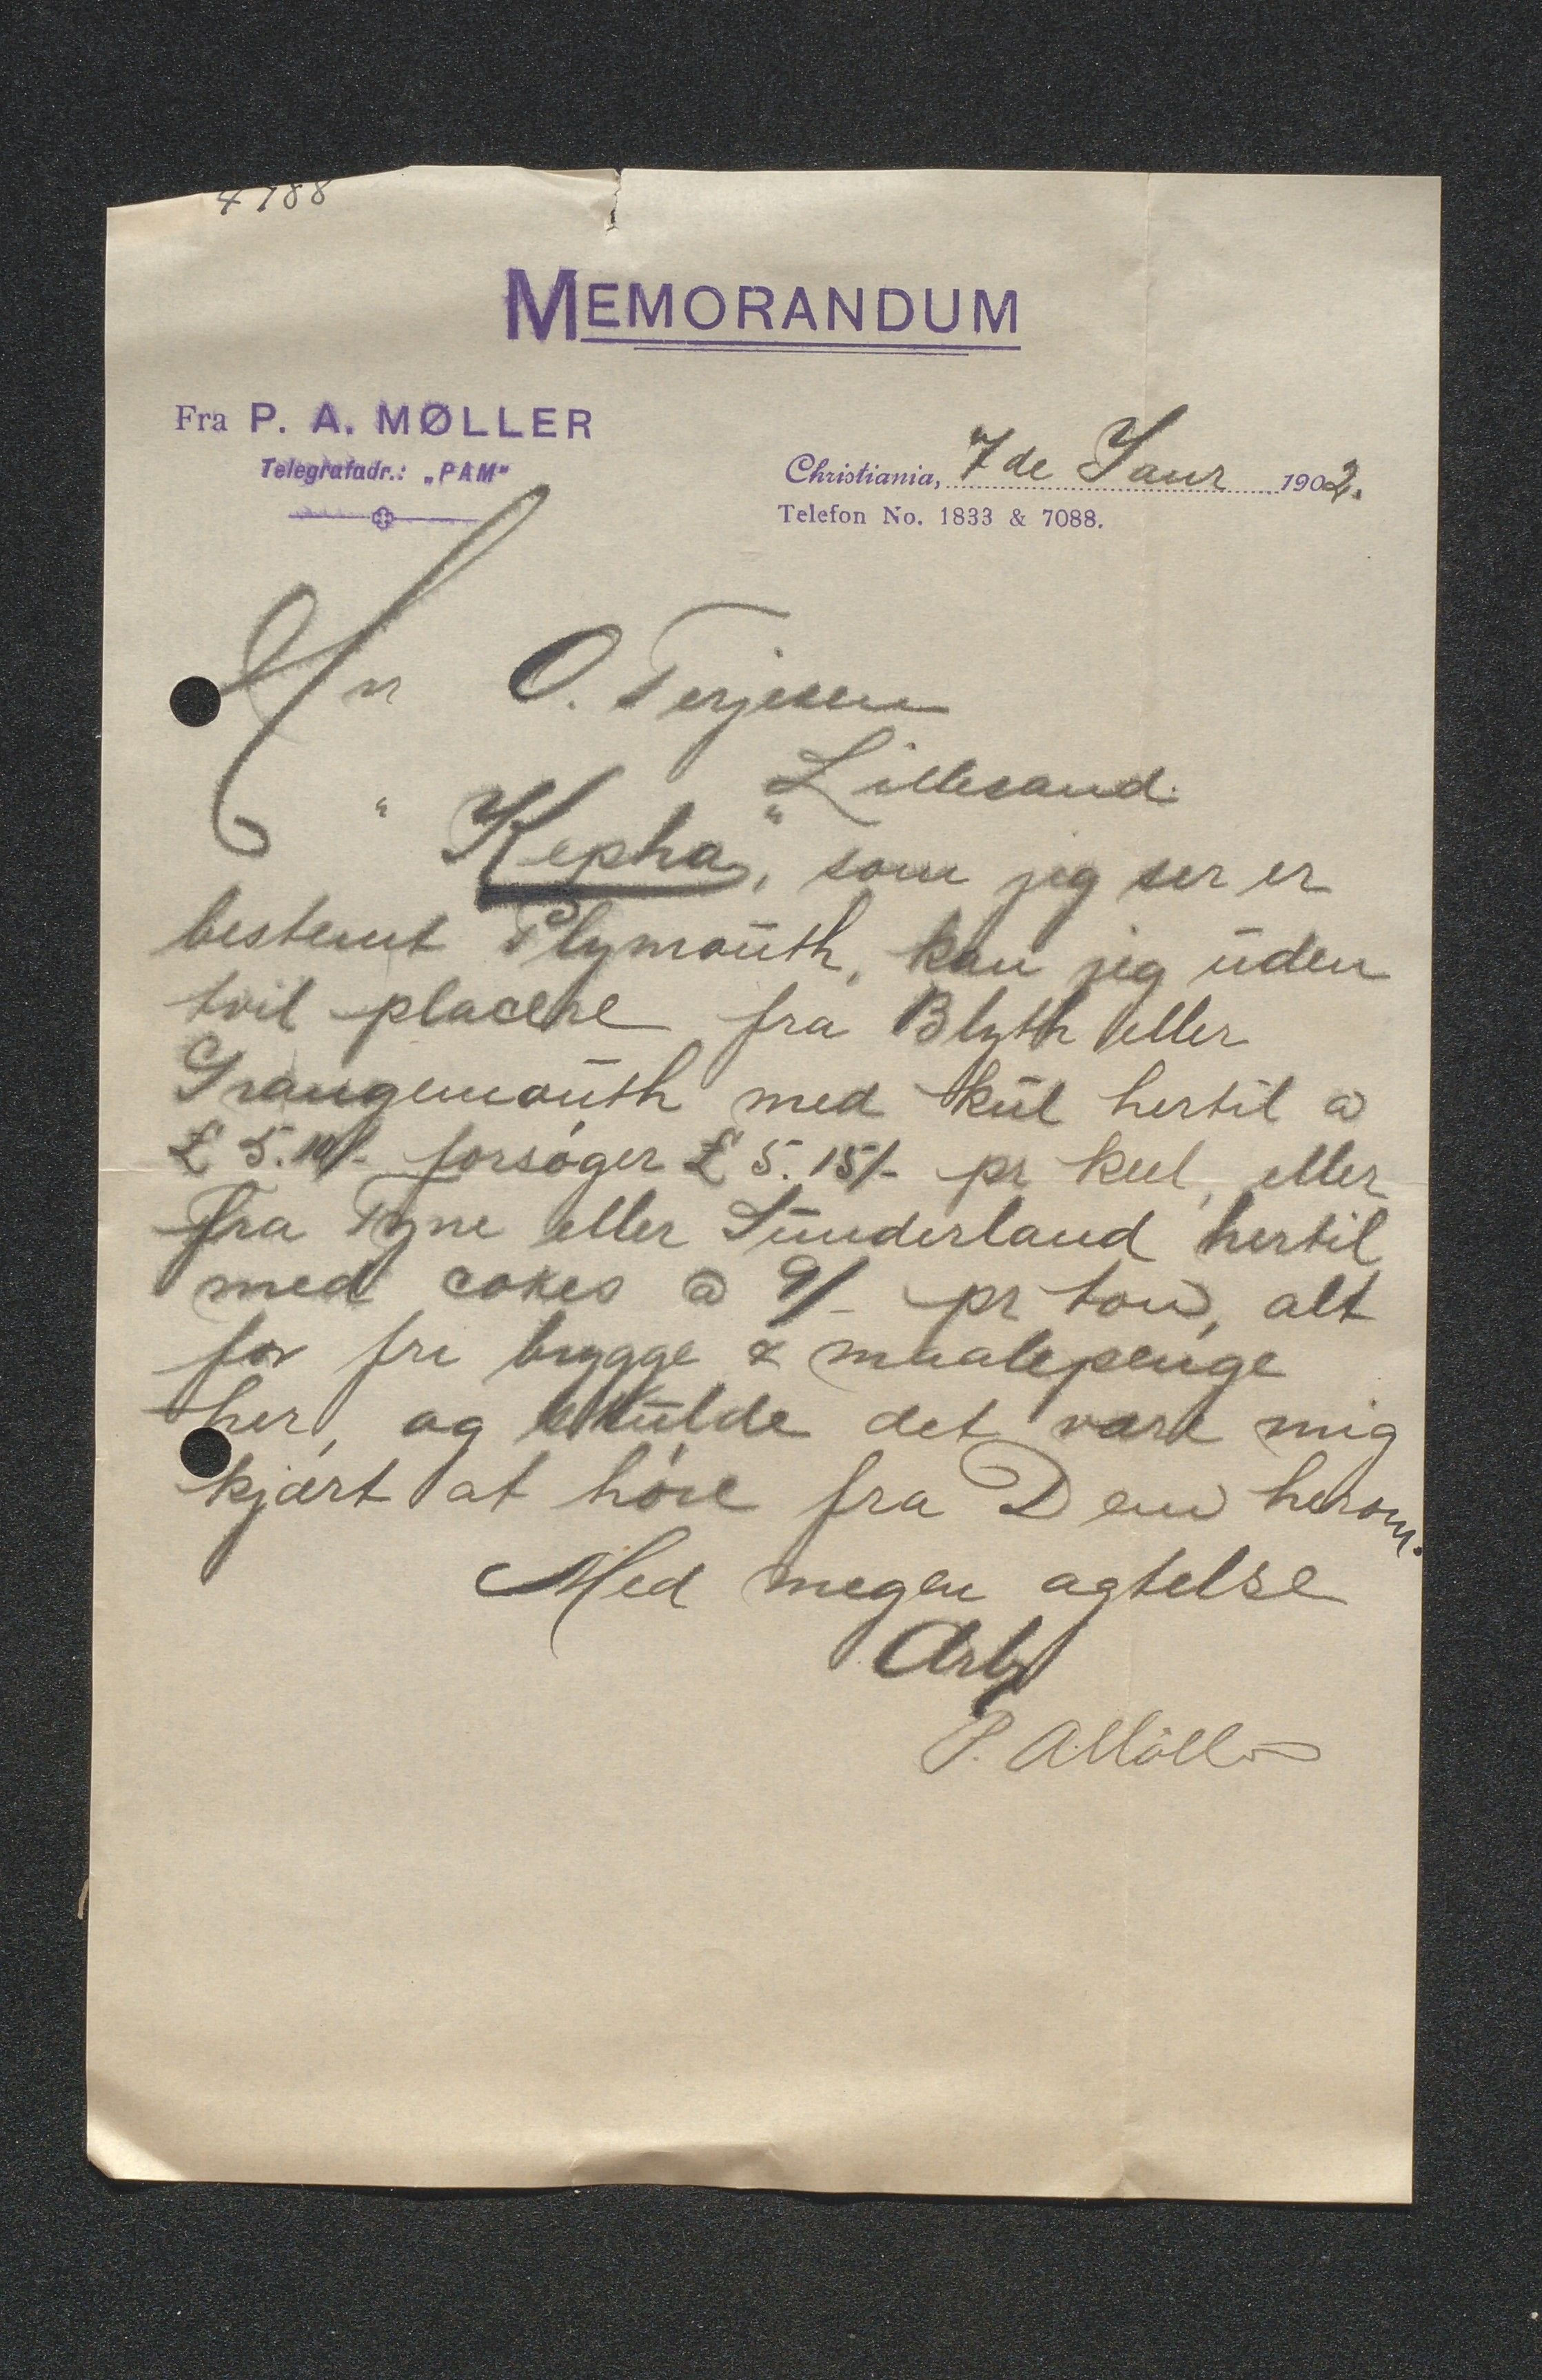 4788
MEMORANDUM
Fra P. A. MØLLER
Telegrafadr.: „PAM"
Christiania, 7 de Janr 1902.
Telefon No. 1833 & 7088.
Hr O. Terjesen
Lillesand.
"Kepha", som jeg ser er
bestemt Plymouth, kan jeg uden
tvil placere fra Blyth eller
Grangemouth med kul hertil a
£ 5.10/- forsøger £ 5.15/- pr keel, eller
fra Tyne eller Sunderland hertil
med cokes a 9/- pr ton, alt
for fri brygge & maalepenge
her, og skulde det være mig
kjært at høre fra Dem herom.
Med megen agtelse
Arb
P. A Møller